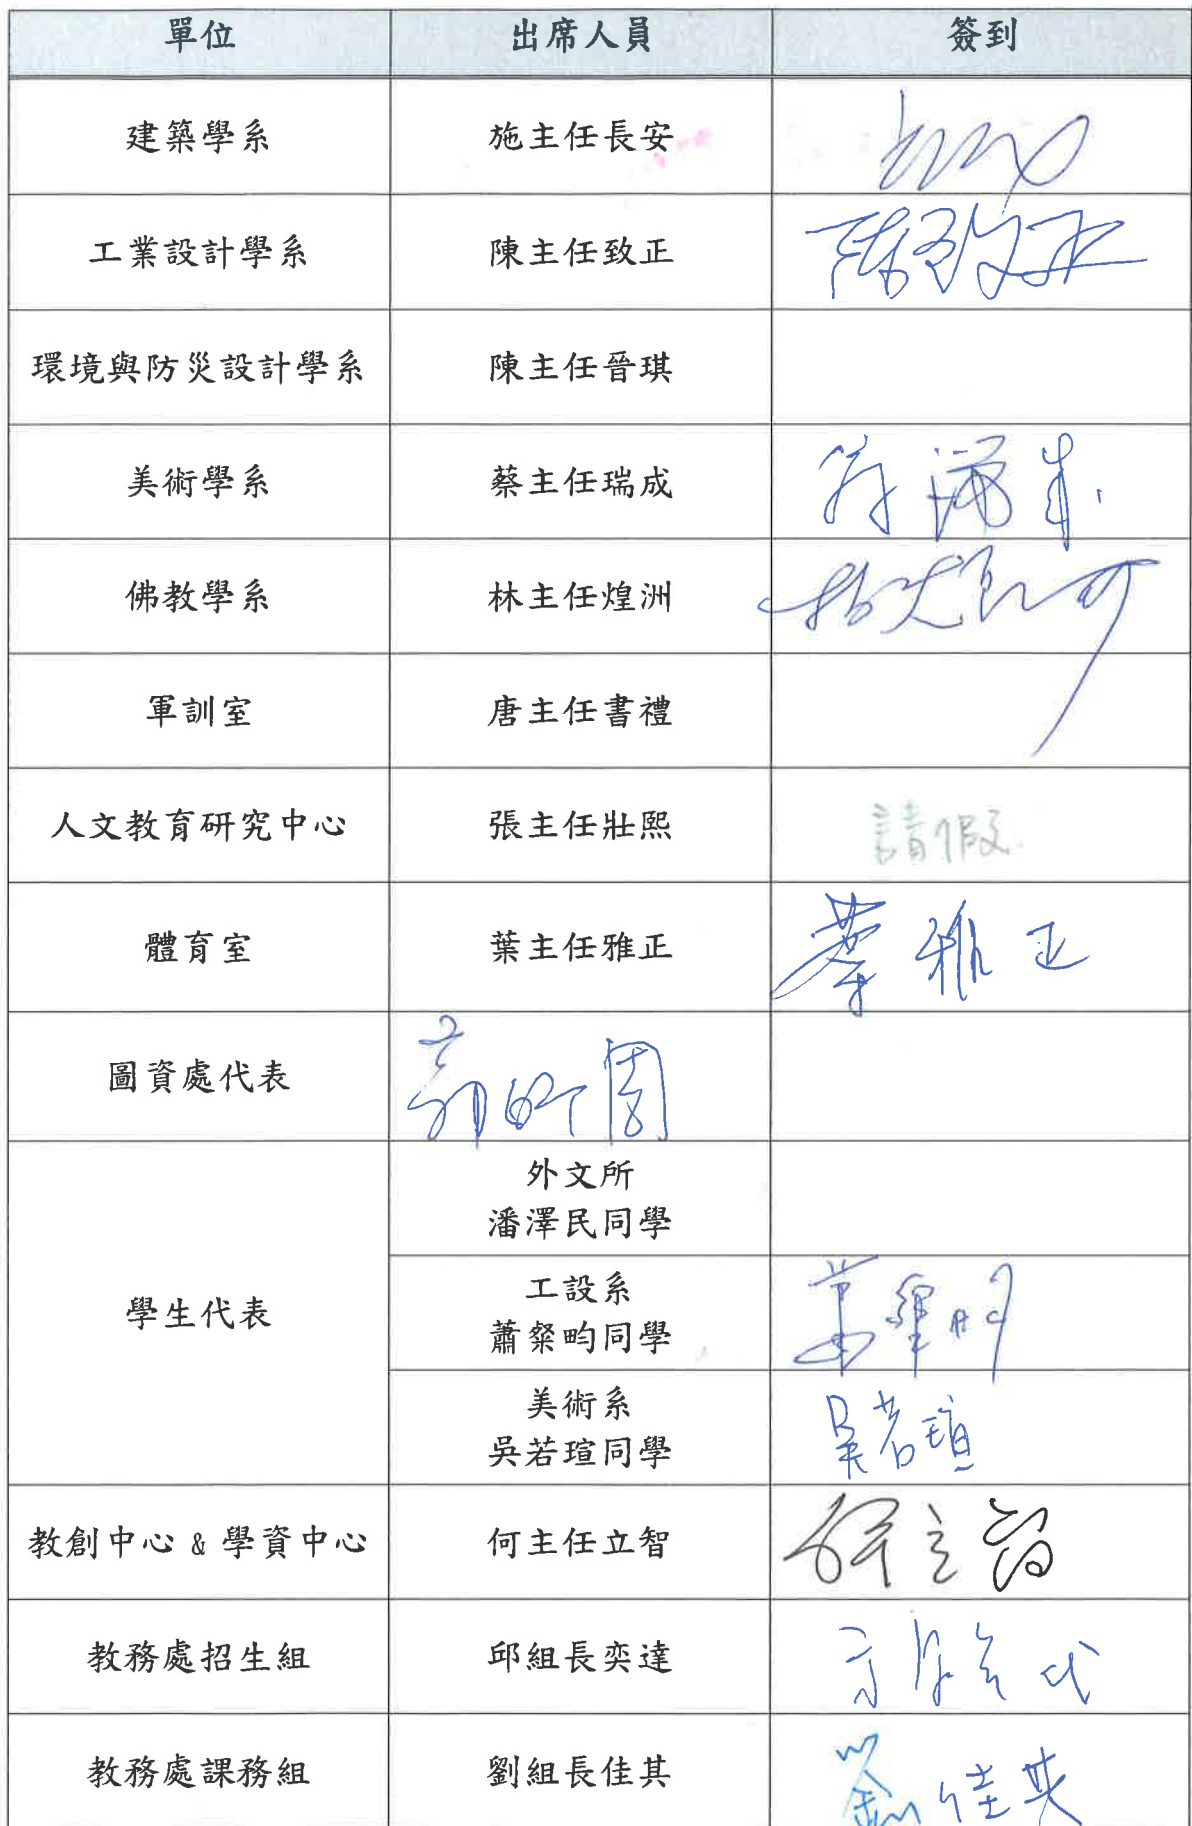 單位 出席人員 簽到
建築學系 施主任長安
工業設計學系 陳主任致正 陳致正
環境與防災設計學系 陳主任晉琪
美術學系 蔡主任瑞成 蔡瑞成
佛教學系 林主任煌洲 林煌洲
軍訓室 唐主任書禮
人文教育研究中心 張主任壯熙 請假
體育室 葉主任雅正 葉雅正
圖資處代表
學生代表
外文所
潘澤民同學
工設系
蕭粲畇同學 蕭粲畇
美術系
吳若瑄同學 吳若瑄
教創中心 & 學資中心 何主任立智 何立智
教務處招生組 邱組長奕達
教務處課務組 劉組長佳其 劉佳其